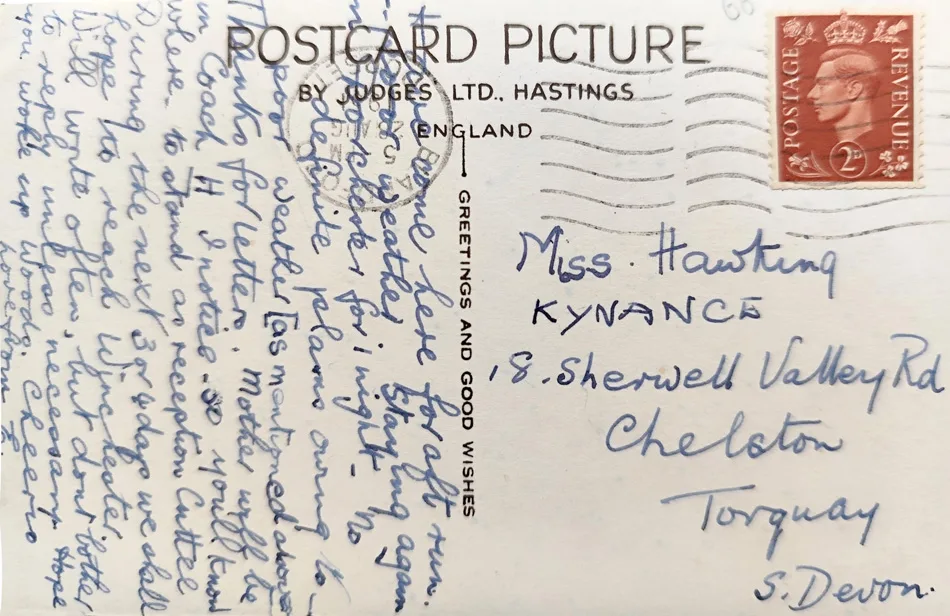 POSTCARD PICTURE
BY JUDGES LTD., HASTINGS
ENGLAND
GREETINGS AND GOOD WISHES
POSTAGE
REVENUE
2D
28 AUG
DORSET
Miss. Hawking
KYNANCE
18. Sherwell Valley Rd
Chelston
Torquay
S. Devon.
Have come here for aft run.
Poor weather. Staying again
in Dorchester for 1 night - No
definite plans owing to
poor weather [as mentioned above
Thanks for letters. Mother will be
in Coach H I notice - so you'll know
where to stand as reception Cuttel
During the next 3 or 4 days we shall
hope to reach Winchester
Will write often, but don't bother
to reply unless necessary. Hope
you woke up Woods. Cheerio
love from